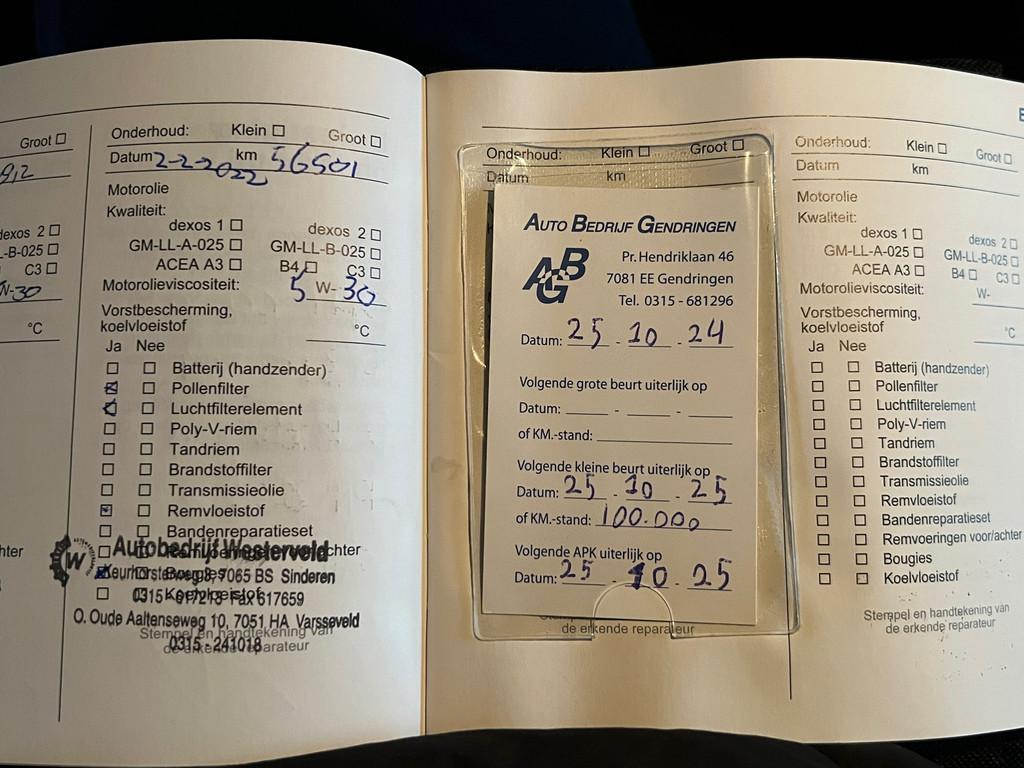 Groot ☐
9,2
dexos 2 ☐
L-B-025 ☐
C3 ☐
W-30
°C
hter
Onderhoud: Klein ☐ Groot ☐
Datum 2-2-2022 km 56501
Motorolie
Kwaliteit:
dexos 1 ☐ dexos 2 ☐
GM-LL-A-025 ☐ GM-LL-B-025 ☐
ACEA A3 ☐ B4 ☐ C3 ☐
Motorolieviscositeit: 5 W- 30
Vorstbescherming,
koelvloeistof °C
Ja Nee
Batterij (handzender)
Pollenfilter
Luchtfilterelement
Poly-V-riem
Tandriem
Brandstoffilter
Transmissieolie
Remvloeistof
Bandenreparatieset
Autobedrijf Westerveld
7065 BS Sinderen
Bougies
Fax 617659
Koelvloeistof
O. Oude Aaltenseweg 10, 7051 HA Varsseveld
0315 - 241018
Stempel en handtekening van
de erkende reparateur
Onderhoud: Klein ☐ Groot ☐
Datum km
AUTO BEDRIJF GENDRINGEN
AGB
Pr. Hendriklaan 46
7081 EE Gendringen
Tel. 0315 - 681296
Datum: 25 - 10 - 24
Volgende grote beurt uiterlijk op
Datum: ____ - ____ - ____
of KM.-stand: ____
Volgende kleine beurt uiterlijk op
Datum: 25 - 10 - 25
of KM.-stand: 100.000
Volgende APK uiterlijk op
Datum: 25 - 10 - 25
de erkende reparateur
E
Onderhoud: Klein ☐ Groot ☐
Datum km
Motorolie
Kwaliteit:
dexos 1 ☐ dexos 2 ☐
GM-LL-A-025 ☐ GM-LL-B-025 ☐
ACEA A3 ☐ B4 ☐ C3 ☐
Motorolieviscositeit: W-
Vorstbescherming,
koelvloeistof °C
Ja Nee
☐ ☐ Batterij (handzender)
☐ ☐ Pollenfilter
☐ ☐ Luchtfilterelement
☐ ☐ Poly-V-riem
☐ ☐ Tandriem
☐ ☐ Brandstoffilter
☐ ☐ Transmissieolie
☐ ☐ Remvloeistof
☐ ☐ Bandenreparatieset
☐ ☐ Remvoeringen voor/achter
☐ ☐ Bougies
☐ ☐ Koelvloeistof
Stempel en handtekening van
de erkende reparateur